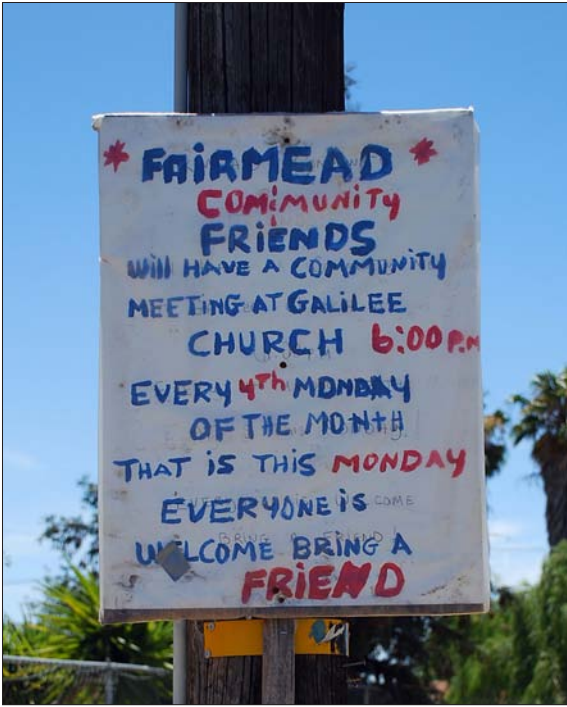 * FAIRMEAD *
COMMUNITY
FRiENDS
Will HAVE A COMMUNITY
MEETING AT GALILEE
CHURCH 6:00 P.M
EVERY 4Th MONDAY
OF THE MONTH
THAT iS THIS MONDAY
EVERYONE iS
WELCOME BRING A
FRiEND